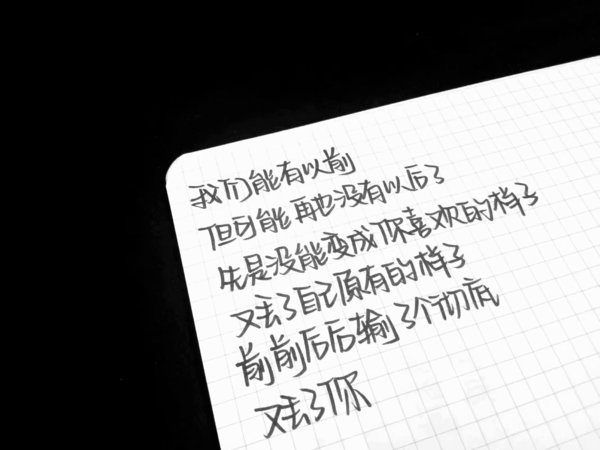 我们能有以前
但可能再也没有以后了
先是没能变成你喜欢的样子
又丢了自己原有的样子
前前后后输了个彻底
又丢了你